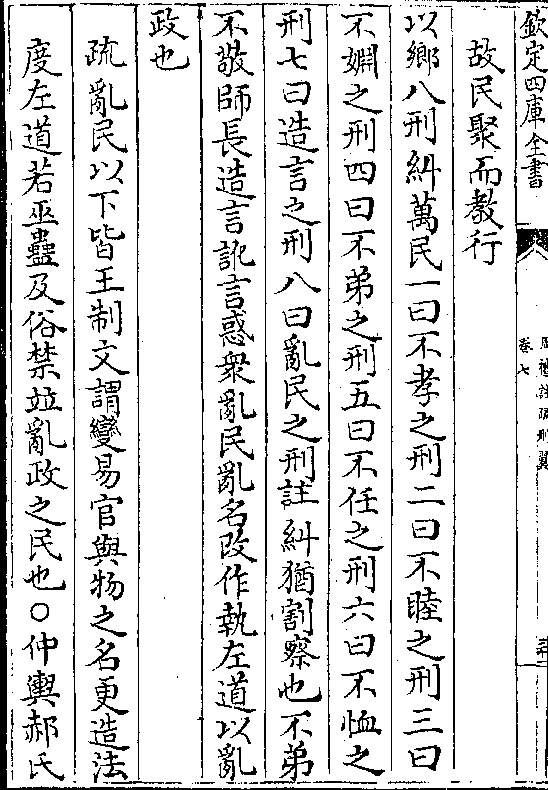 欽定四庫全書
周禮註疏刪翼
卷七
故民聚而教行
以鄉八刑糾萬民一曰不孝之刑二曰不睦之刑三曰
不婣之刑四曰不弟之刑五曰不任之刑六曰不恤之
刑七曰造言之刑八曰亂民之刑註糾猶割察也不弟
不敬師長造言訛言惑衆亂民亂名改作執左道以亂
政也
疏亂民以下皆王制文謂變易官與物之名更造法
度左道若巫蠱及俗禁並亂政之民也○仲輿郝氏